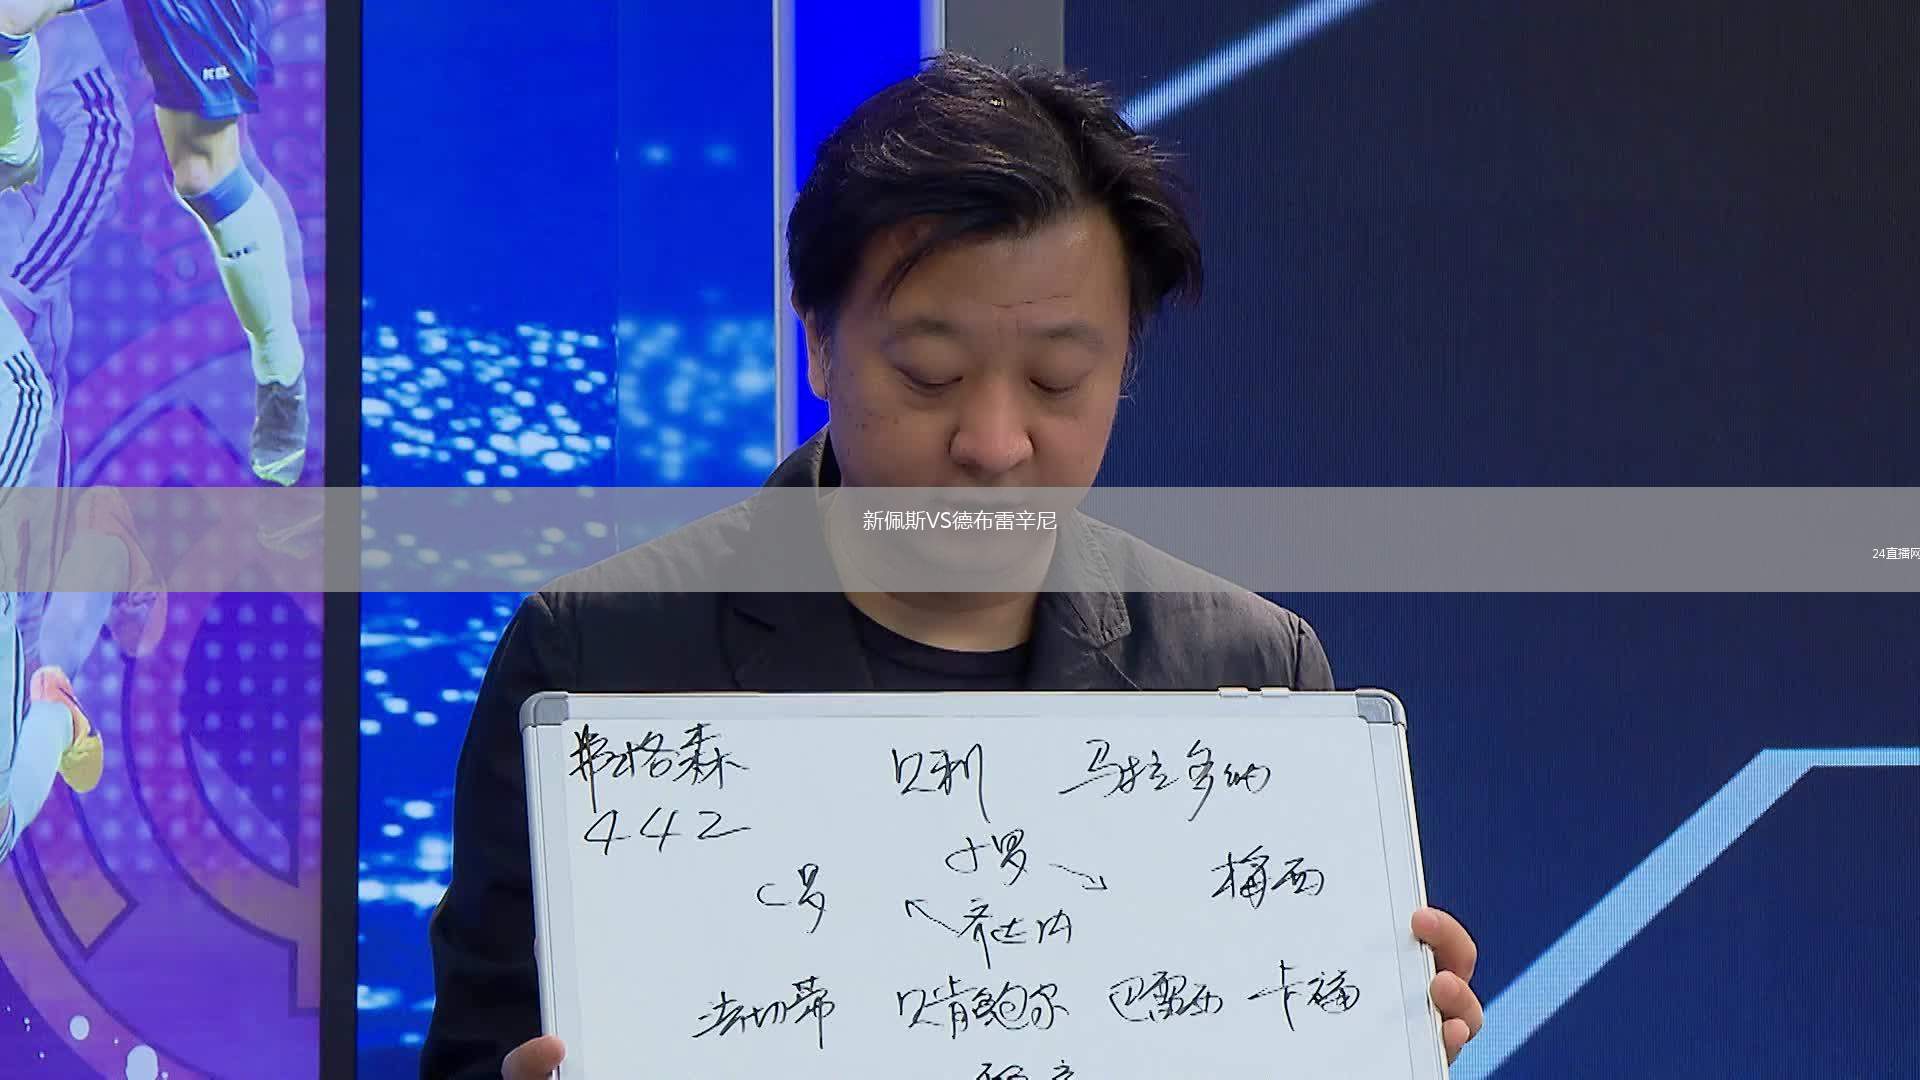 新佩斯VS德布雷辛尼
24直播网
弗格森 贝利 马拉多纳
442
小罗
C罗 梅西
齐达内
法切蒂 贝肯鲍尔 巴雷西 卡福